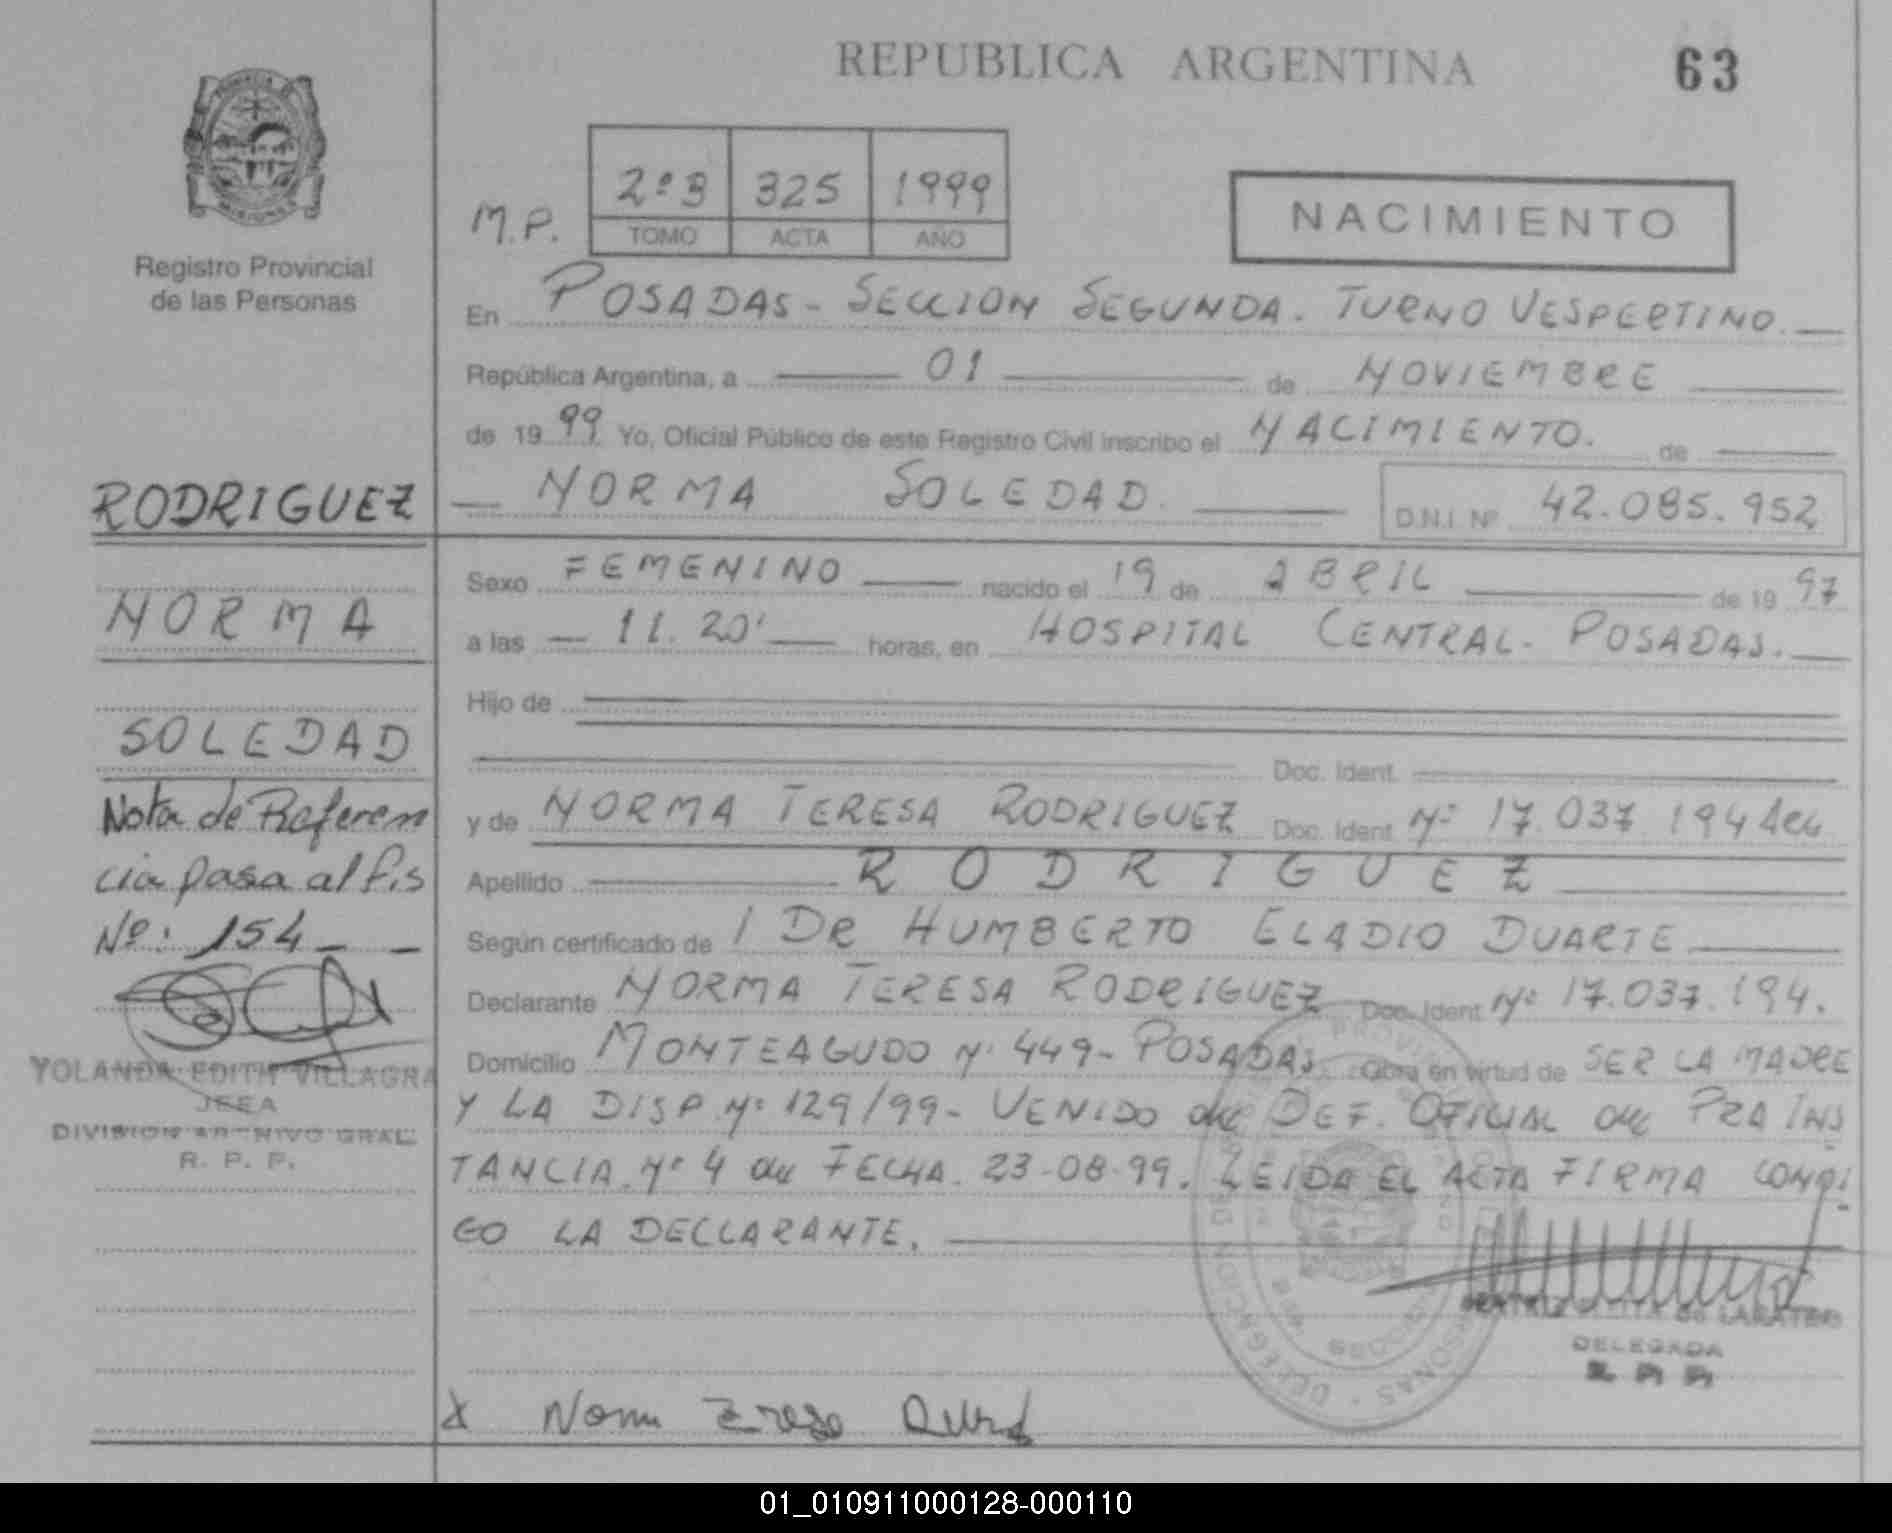 REPUBLICA ARGENTINA
63
Registro Provincial
de las Personas
M.P.
2º B 325 1999
TOMO ACTA AÑO
NACIMIENTO
En POSADAS - SECCION SEGUNDA. TURNO VESPERTINO.
República Argentina, a 01 de NOVIEMBRE
de 1999 Yo, Oficial Público de este Registro Civil inscribo el NACIMIENTO. de
NORMA SOLEDAD.
D.N.I. Nº 42.085.952
RODRIGUEZ
NORMA
SOLEDAD
Nota de Referen
cia pasa al fis
Nº: 154
YOLANDA EDITH VILLAGRA
JEFA
DIVISION ARCHIVO GRAL.
R. P. P.
Sexo FEMENINO nacido el 19 de ABRIL de 1997
a las 11.20' horas, en HOSPITAL CENTRAL - POSADAS.
Hijo de
Doc. Ident.
y de NORMA TERESA RODRIGUEZ Doc. Ident Nº 17.037.194
Apellido RODRIGUEZ
Según certificado de DR HUMBERTO ELADIO DUARTE
Declarante NORMA TERESA RODRIGUEZ Doc. Ident Nº 17.037.194.
Domicilio MONTEAGUDO Nº 449 - POSADAS Obra en virtud de SER LA MADRE
Y LA DISP. Nº 129/99 - VENIDO de DEF. OFICIAL de PRA INS
TANCIA Nº 4 de FECHA 23-08-99. LEIDA EL ACTA FIRMA CONMI
GO LA DECLARANTE.
DELEGADA
X
01_010911000128-000110